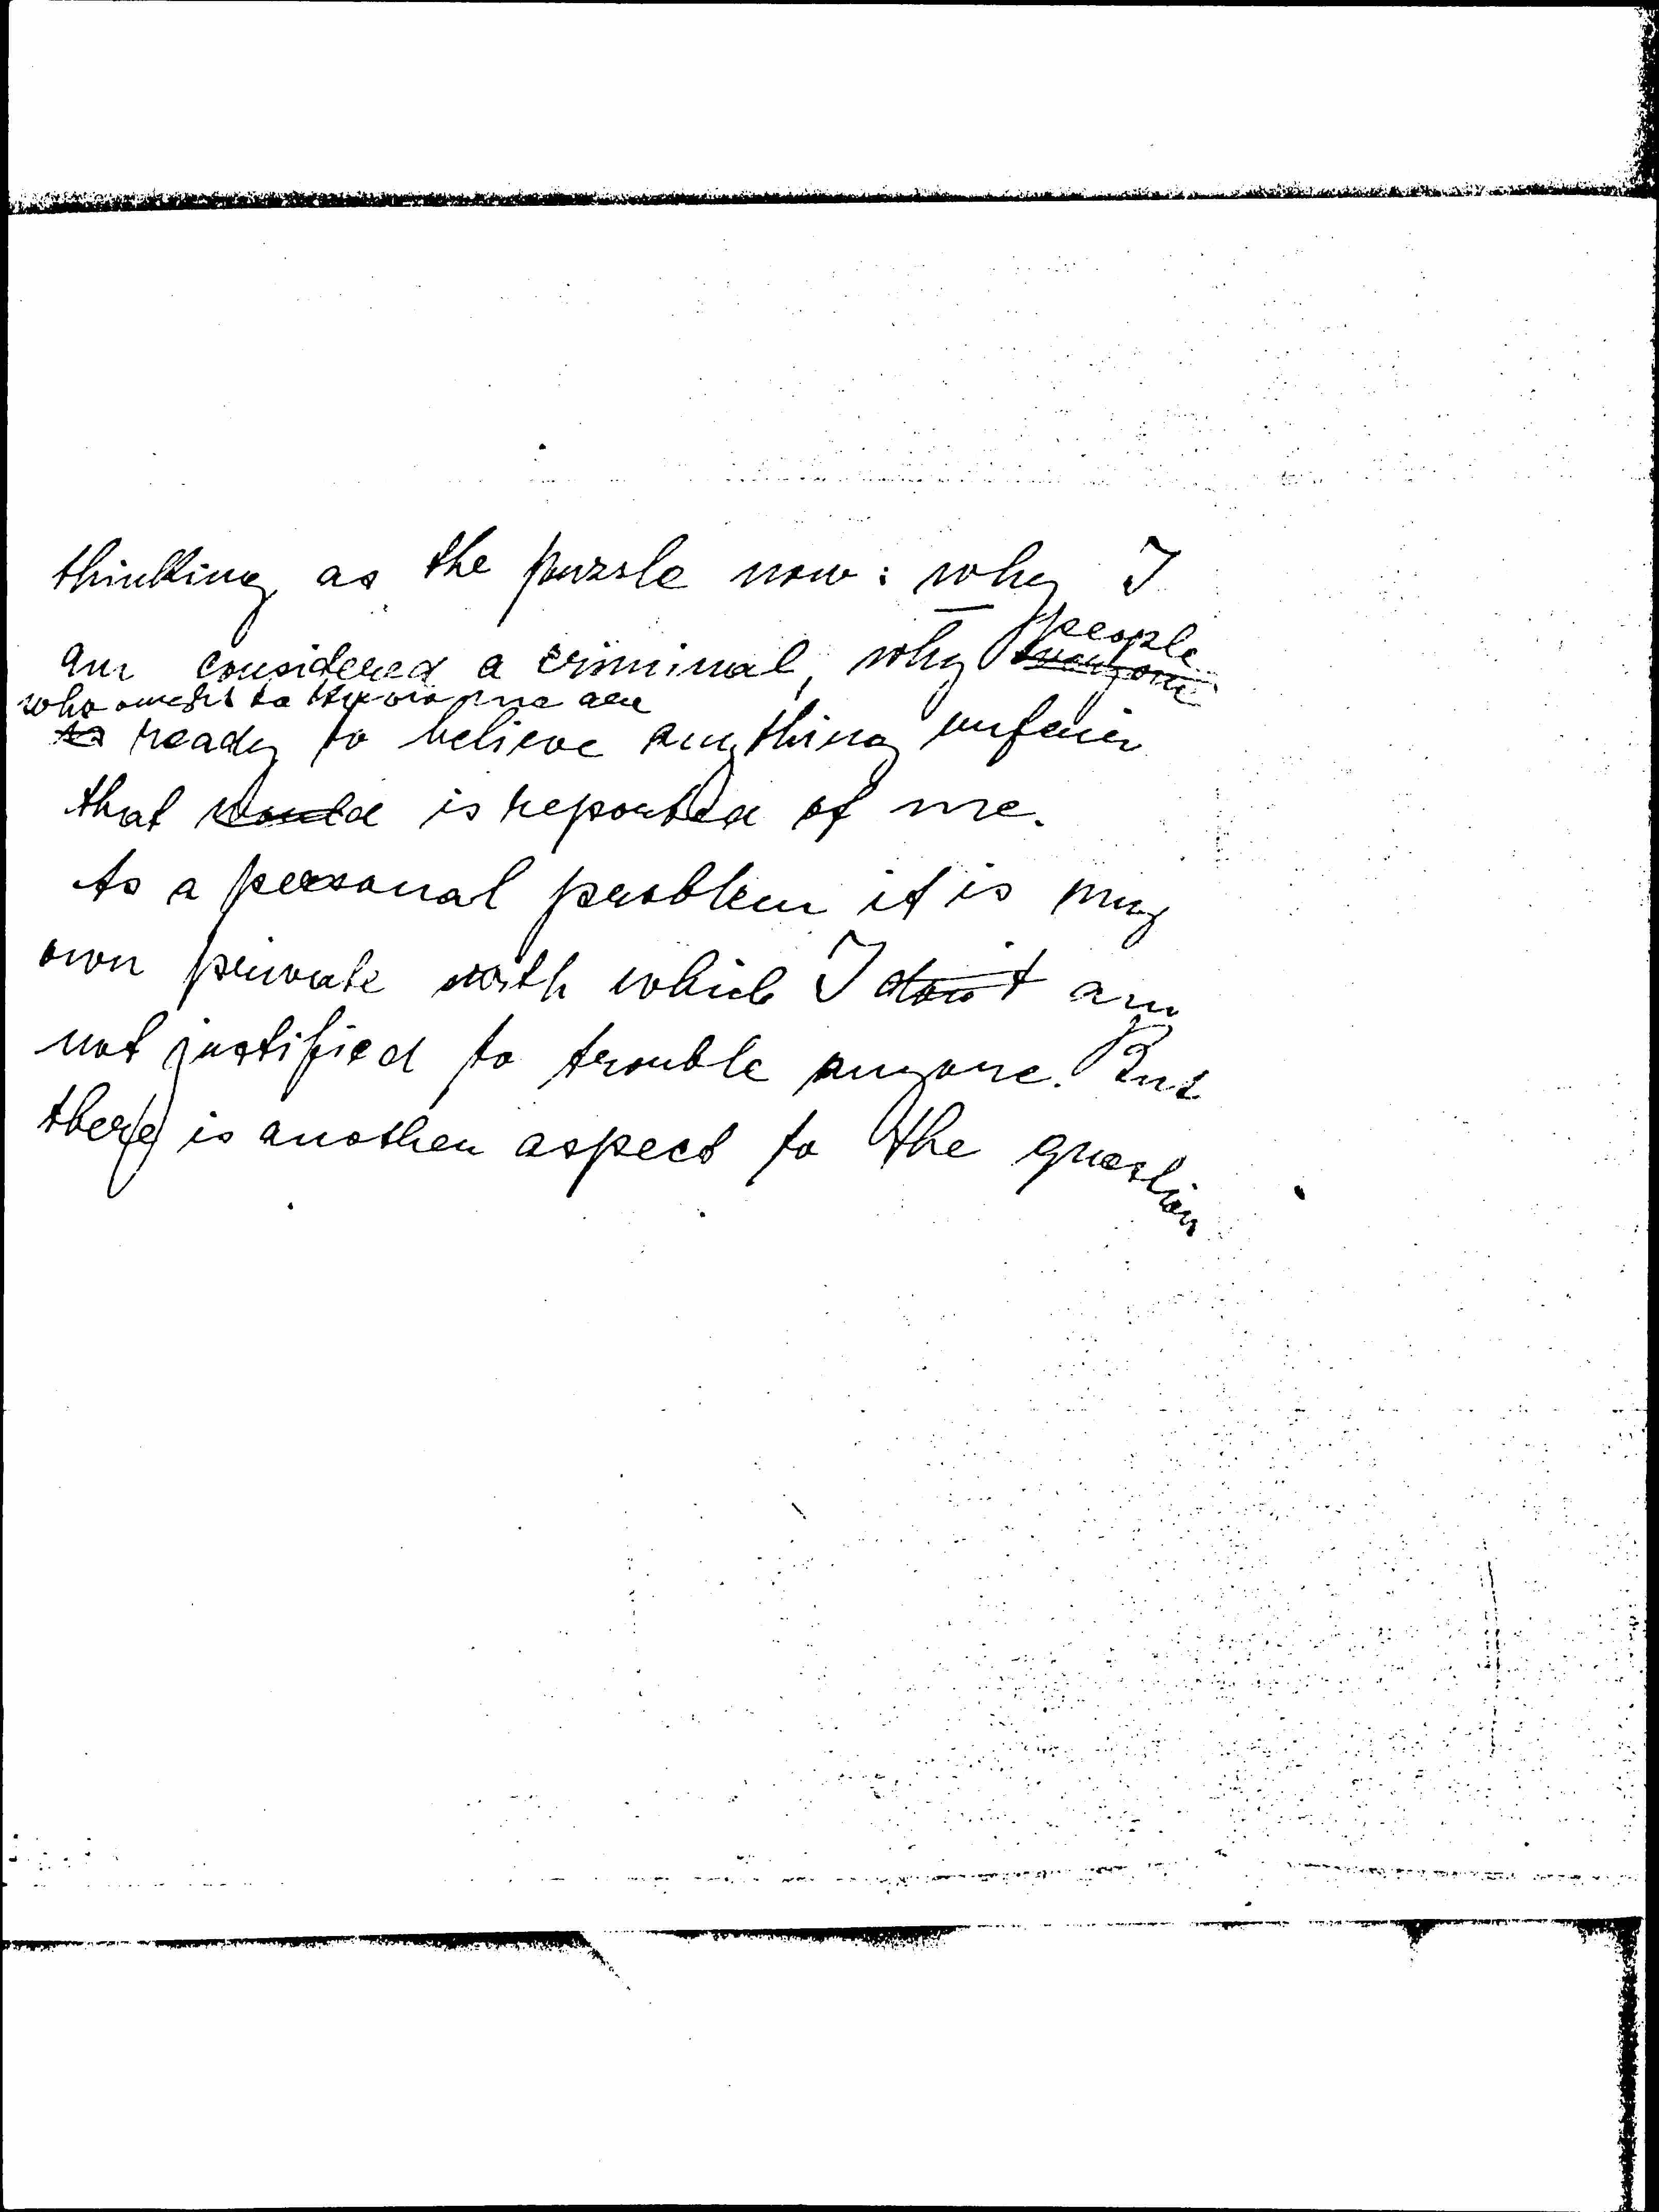 thinking as the puzzle now: why I
am considered a criminal, why people
who ought to know me are
ready to believe anything unfair
that would is reported of me.
As a personal problem it is my
own private with which I don't am
not justified to trouble anyone. But
there is another aspect to the question